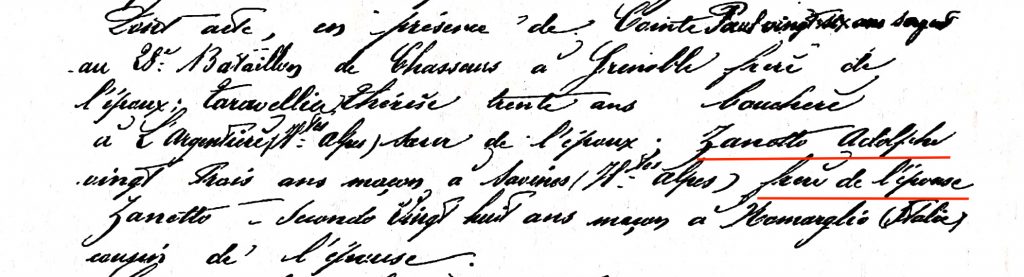 Dont acte, en présence de Cointe Paul vingt six ans sergent
au 28e Bataillon de Chasseurs à Grenoble frère de
l'époux; Taravellier Thérèse trente ans bouchère
à L'Argentière, (Htes Alpes) sœur de l'époux; Zanotto Adolphe
vingt trois ans maçon à Savines (Htes Alpes) frère de l'épouse
Zanotto Secondo vingt huit ans maçon à (Italie)
cousin de l'épouse.